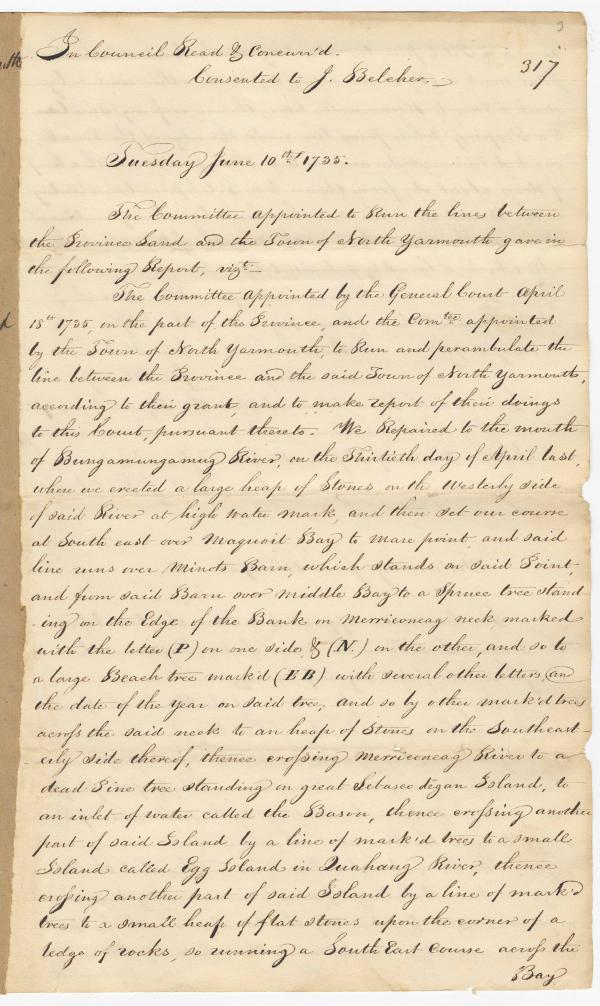 3
In Council Read & Concurr'd.
317
Consented to J. Belcher.
Tuesday June 10th 1735.
The Committee appointed to Run the lines between
the Province Land and the Town of North Yarmouth gave in
the following Report, vizt.
The Committee appointed by the General Court April
18th 1735, on the part of the Province, and the Comtee appointed
by the Town of North Yarmouth, to Run and perambulate the
line between the Province and the said Town of North Yarmouth,
according to their grant, and to make report of their doings
to this Court, pursuant thereto. We Repaired to the mouth
of Bungamungamug River, on the Thirtieth day of April last,
where we erected a large heap of Stones on the Westerly side
of said River at high water mark, and then set our course
at South east over Maquoit Bay to Mare point, and said
line runs over Minots Barn, which stands on said Point
and from said Barn over Middle Bay to a Spruce tree stand
-ing on the Edge of the Bank on Merriconeag neck, marked
with the letter (P) on one side, & (N.) on the other, and so to
a large Beach tree mark'd (EB) with several other letters, and
the date of the year on said tree, and so by other mark'd trees
across the said neck to an heap of Stones on the Southeast
-erly side thereof, thence crossing Merriconeag River to a
dead Pine tree standing on great Sebascodegan Island, to
an inlet of water called the Bason, thence crossing another
part of said Island by a line of mark'd trees to a small
Island called Egg Island in Quahaug River, thence
crossing another part of said Island by a line of mark'd
trees to a small heap of flat stones upon the corner of a
ledge of rocks, so running a South East Course across the
Bay